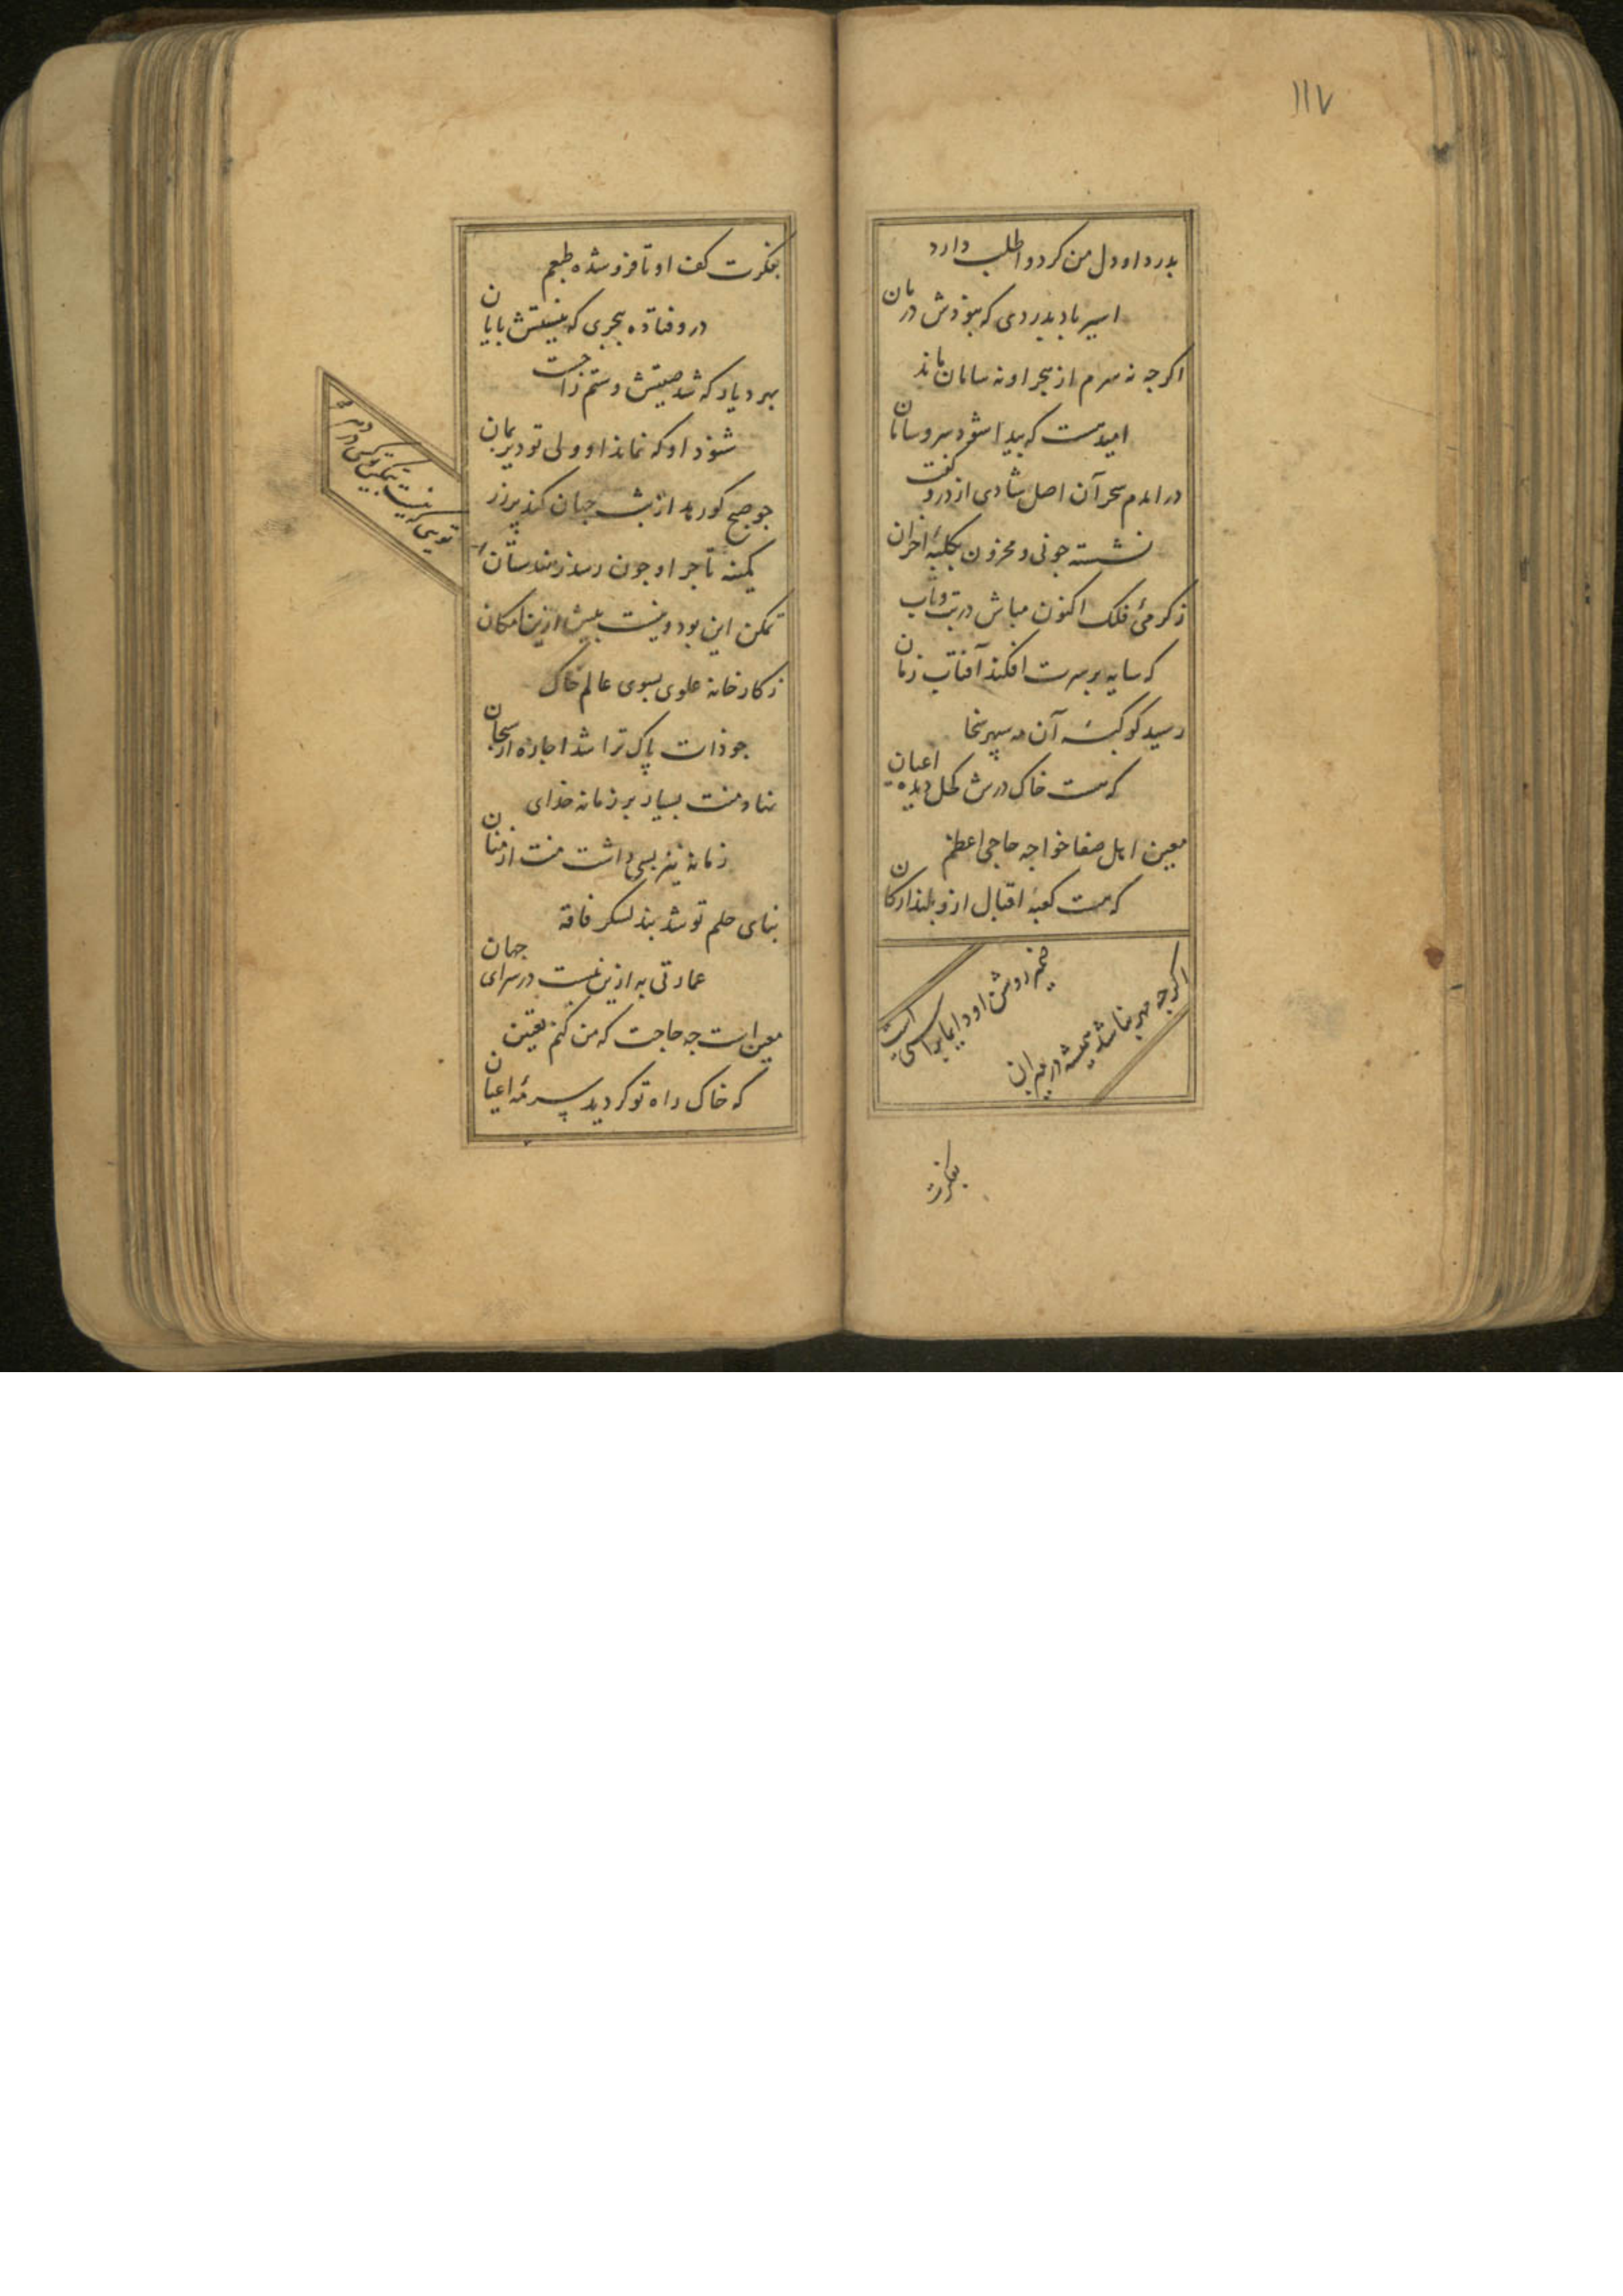 ١١٧
بدرد او دل من کر دوا طلب دارد
اسیر باد بدردی که نبودش درمان
اکرچه نه سرم از هجر او نه سامان ماند
امید هست که پیدا شود سر و سامان
در آمدم سحر آن اصل شادی از در و کفت
نشسته چونی و محزون بکلبهٔ احزان
ز کرمیٔ فلک اکنون مباش در تب و تاب
که سایه بر سرت افکند آفتاب زمان
رسید کوکبهٔ آن مه سپهر سخا
که هست خاک درش کحل دیدهٔ اعیان
معین اهل صفا خواجه حاجی اعظم
که هست کعبهٔ اقبال ازو بلند ارکان
ضمیر روشن او را
اکرچه مهر نباشد همیشه در میزان
بفکرت
بفکرت کف او تا فرو شده طبعم
در و فتاده ببحری که نیستش پایان
بهر دیار که شد صیتش و ستم زاحت
شنود او که نماند او ولی تو دیر بمان
چو صبح کو رمد از شب جهان کند پر زر
کمینه تاجر او چون رسد ز هندستان
تویی که نیست بتمکین تو کسی در دهر
تمکن این بود و نیست بیش ازین امکان
ز کارخانه علوی بسوی عالم خاک
چو ذات پاک ترا شد اجازه از سبحان
نهاد منت بسیار بر زمانه خدای
زمانه نیز بسی داشت منت از منان
بنای حلم تو شد بند لشکر فاقه
عمارتی به ازین نیست در سرای جهان
معین است چه حاجت که من کنم تعیین
که خاک راه تو کردید سرمهٔ اعیان